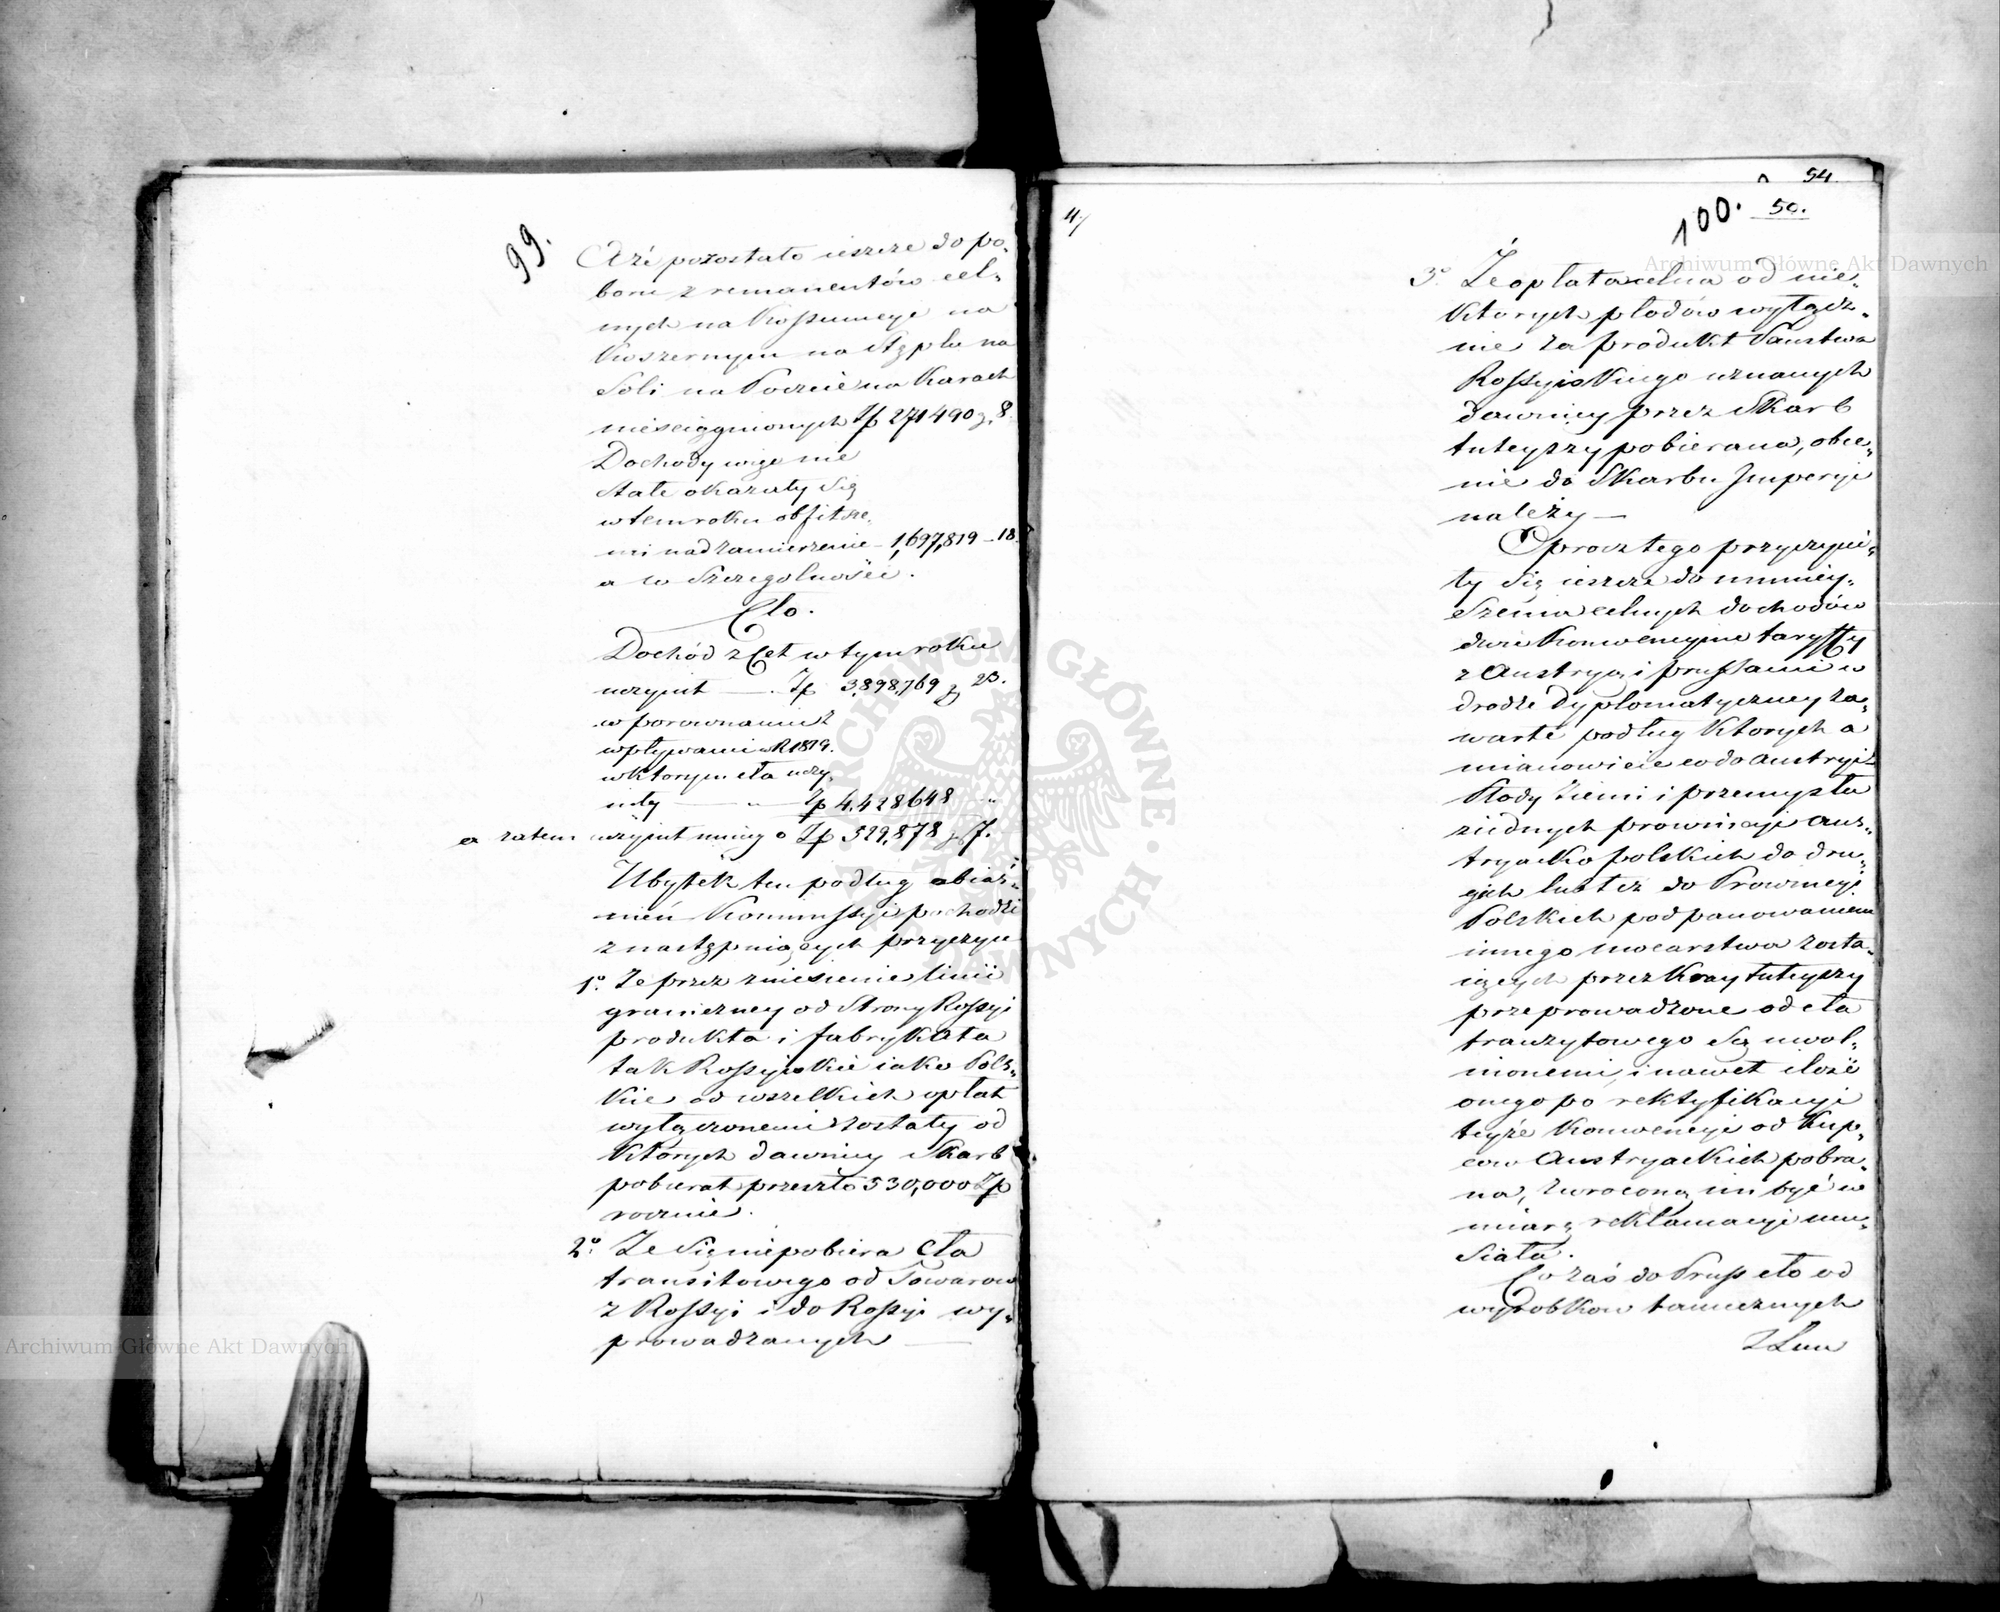 99.
A że pozostało ieszcze do po-
boru z remanentów cel-
nych na Konsumcyi na
Koszernym na stęplu na
Soli na Poczcie na Karach
nieściągnionych Zp 271490 g. 8.
Dochody więc nie
stałe okazały się
w tem roku obfitsze-
mi nad zamierzenie - 1,697,819 - 18.
a w szczególności.
Cło.
Dochód z Ceł w tym roku
uczynił — Zp 3,898,769 g 23.
w porównaniu z
wpływami z R. 1819.
w ktorym cła uczy-
niły — " — Zp 4,428648 "
a zatem uczynił mniey o Zp 529,878 g 7.
Ubytek ten podług obiaś-
nień Kommissyi pochodzi
z następuiących przyczyn
1o. Że przez zniesienie linii
graniczney od Strony Rossyi
produkta i fabrykata
tak Rossyiskie iako Pols-
kie od wszelkich opłat
wyłączonemi zostały od
których dawniey Skarb
pobierał przeszło 530,000 Zp
rocznie.
2o. Że się niepobiera Cła
transitowego od Towarow
z Rossyi i do Rossyi wy-
prowadzanych —
4/
54
100. 50.
3o Że opłata celna od nie-
ktorych płodów wyłącz-
nie za produkt Państwa
Rossyiskiego uznanych
dawniey przez Skarb
tuteyszy pobierana, obec-
nie do Skarbu Imperyi
należy —
Oprocz tego przyczyni-
ły się ieszcze do zmniey-
szenia celnych dochodów
dwie Konwencyine taryffy
z Austryą i prussami w
drodze dyplomatyczney za-
warte podług ktorych a
mianowicie co do Austryi
Płody ziemi i przemysłu
ziednych prowincyi Aus-
tryacko polskich do dru-
gich lub też do Prowincyi
Polskich pod panowaniem
innego mocarstwa zosta-
iących przez Kray tuteyszy
przeprowadzone od cła
tranzytowego są uwol-
nionemi, i nawet ilość
onego po rektyfikacyi
teyże Konwencyi od Kup-
cow Austryackich pobra-
na, zwroconą im być w
miarę reklamacyi mu-
siała.
Co zaś do Pruss cło od
wyrobkow tamecznych
z Lnu
Archiwum Główne Akt Dawnych
Archiwum Główne Akt Dawnych
ARCHIWUM GŁÓWNE AKT DAWNYCH